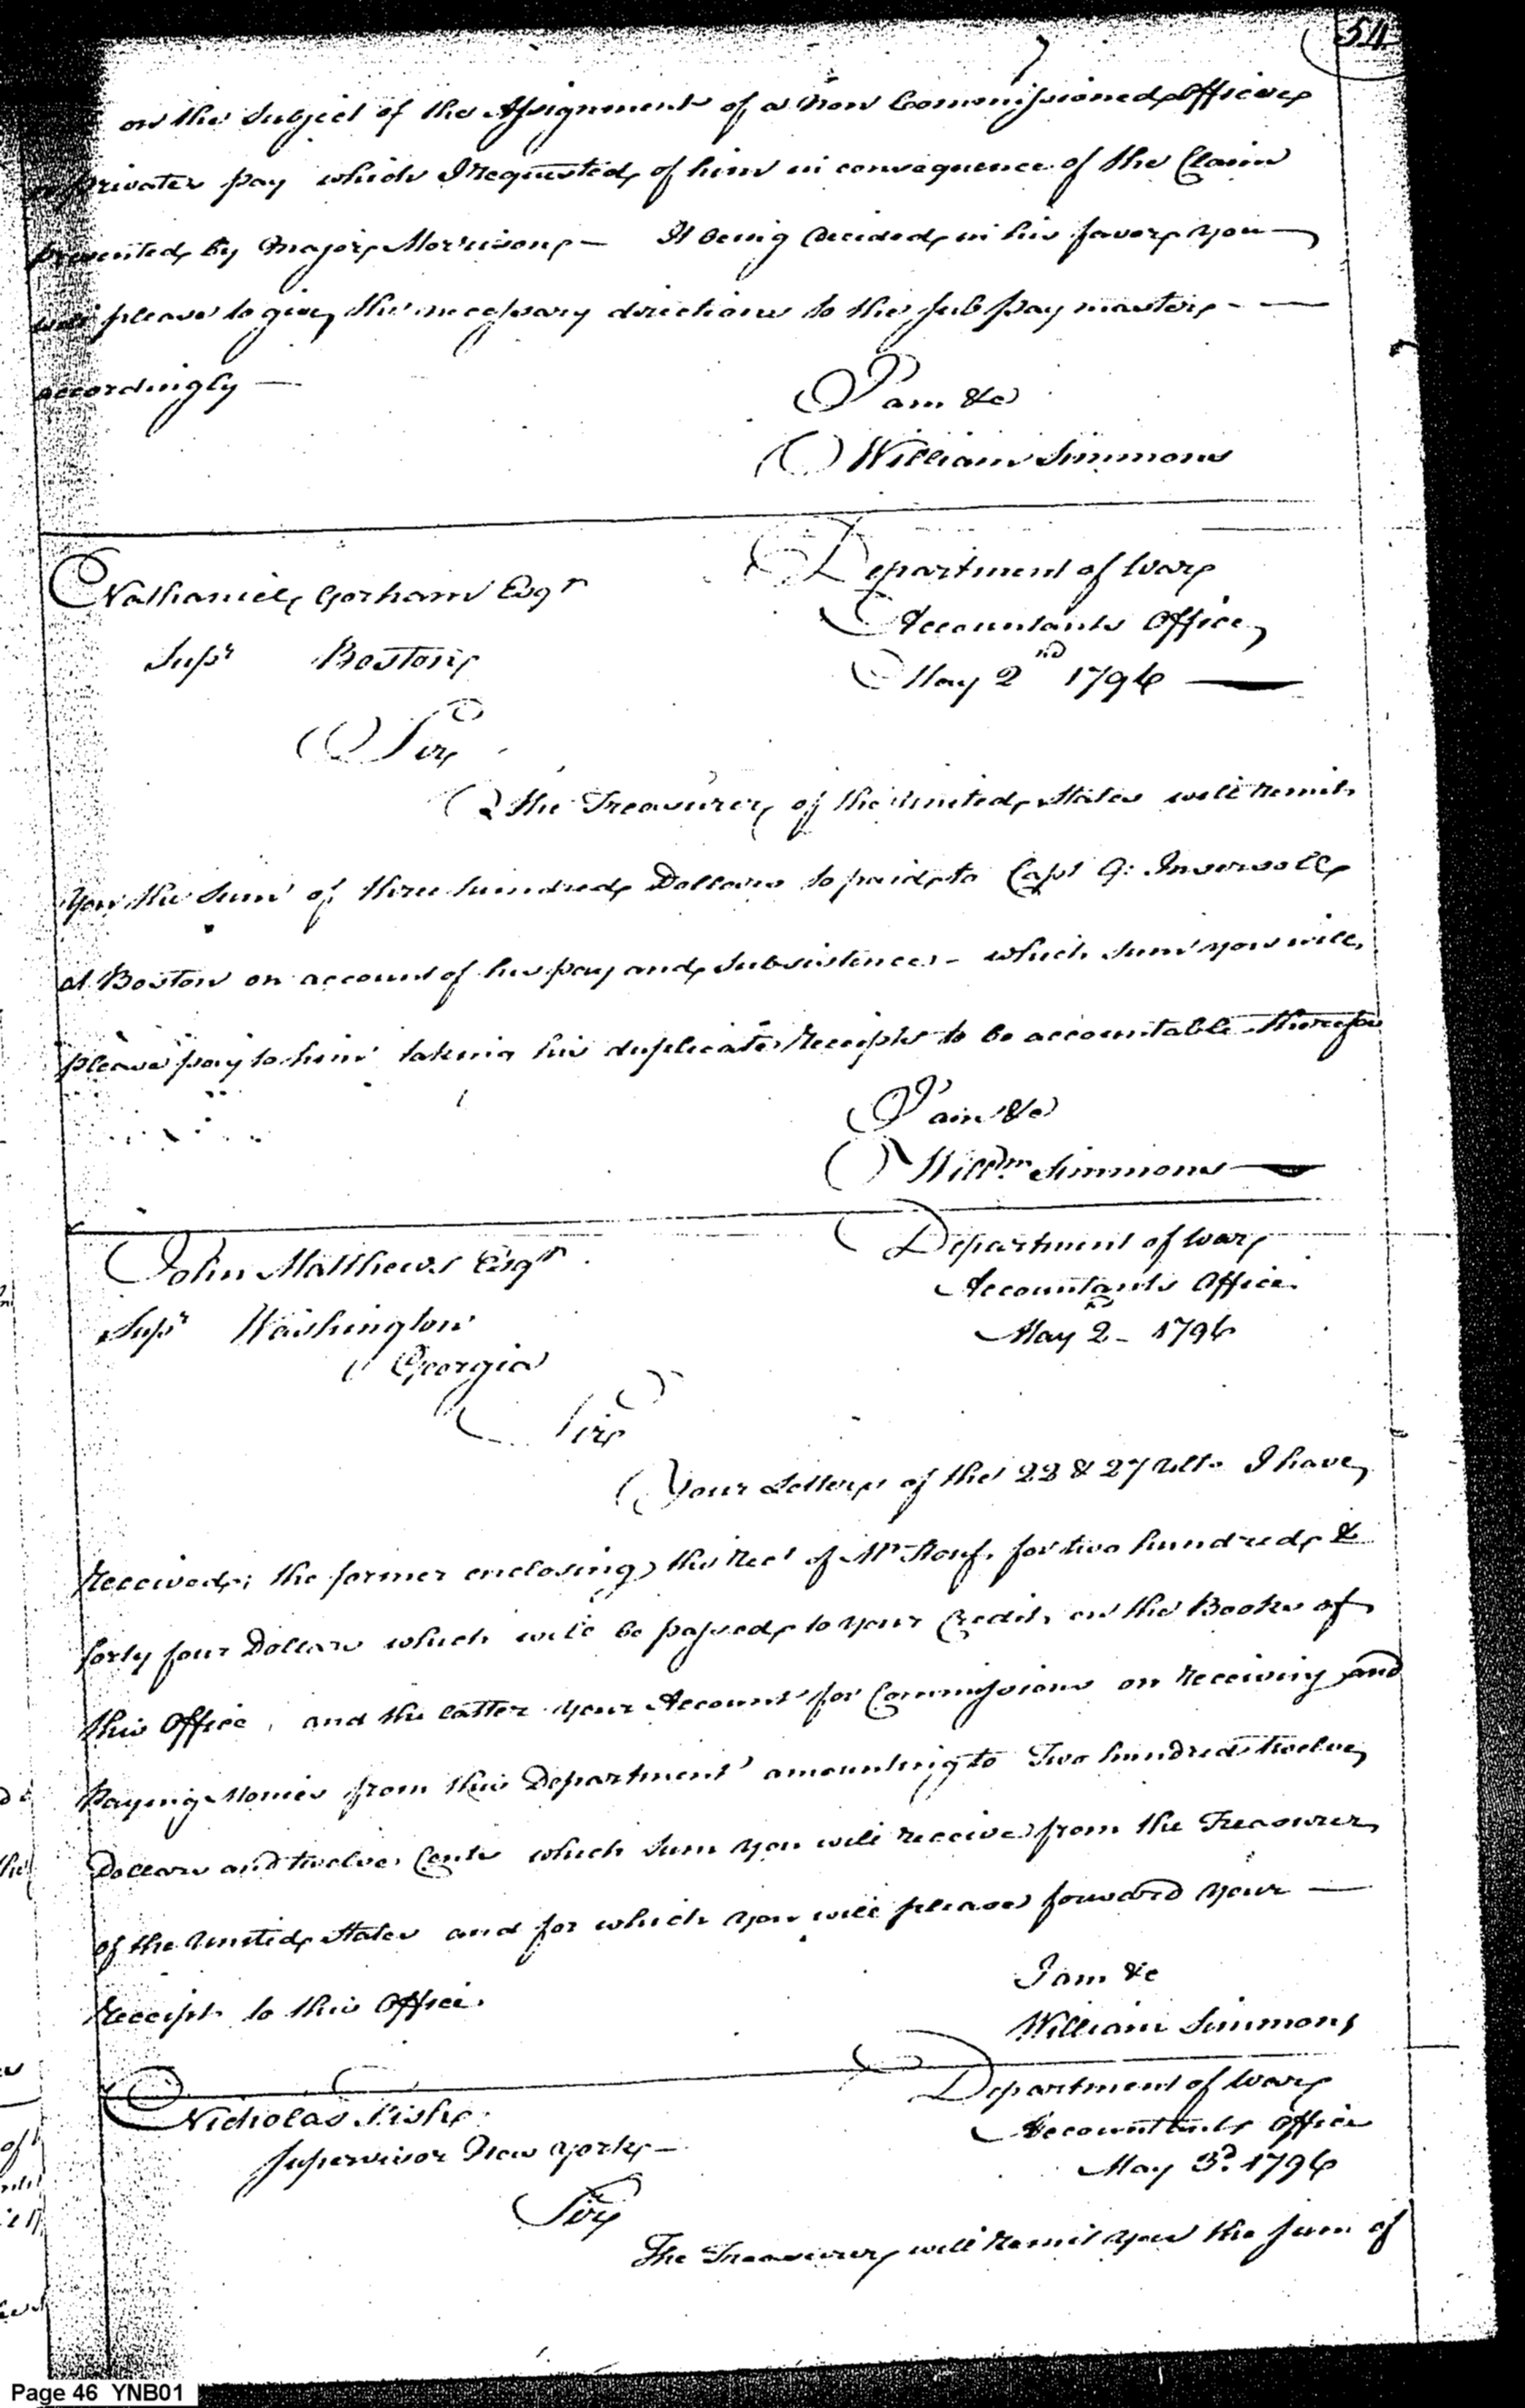 54
on the subject of the Assignment of a non Commissioned Officer
or privates pay which I requested of him in consequence of the Claim
presented by Major Morrison — It being decided in his favor you
will please to give the necessary directions to the sub pay master
accordingly —
I am &c
William Simmons
Nathaniel Gorham Esqr
Department of War
Accountants Office
Supr Boston
May 2nd 1796
Sir
The Treasurer of the United States will remit
you the sum of three hundred Dollars to paid to Capt G: Ingersoll
at Boston on account of his pay and subsistence - which sum you will
please pay to him taking his duplicate receipts to be accountable therefor
I am &c
Willm Simmons
John Matthews Esqr
Department of War
Accountants Office
Supr Washington
May 2nd 1796
Georgia
Sir
Your Letters of the 22 & 27 Ulto I have
received; the former enclosing the rect of Mr for two hundred &
forty four Dollars which will be passed to your Credit on the Books of
this Office, and the latter your Account for Commissions on receiving and
Paying Monies from this Department amounting to Two hundred twelve
Dollars and twelve Cents which sum you will receive from the Treasurer
of the United States and for which you will please forward your —
receipt to this Office.
I am &c
William Simmons
Nicholas Fish
Department of War
Accountants Office
Supervisor New York —
May 3d. 1796
Sir
The Treasurer will remit you the sum of
Page 46 YNB01